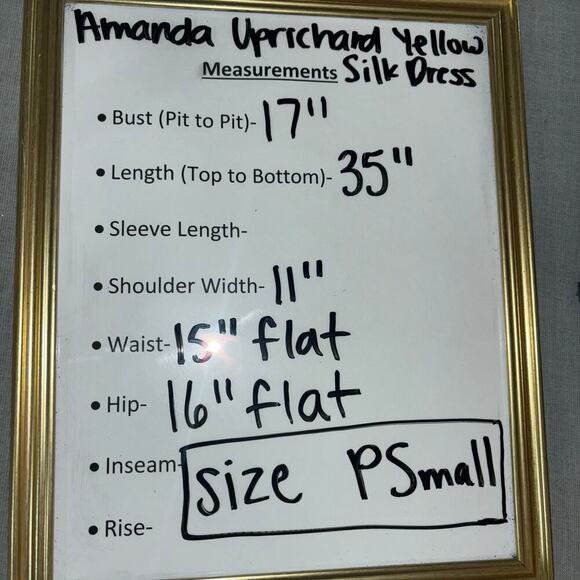 Amanda Uprichard Yellow
Measurements Silk Dress
• Bust (Pit to Pit)- 17"
• Length (Top to Bottom)- 35"
• Sleeve Length-
• Shoulder Width- 11"
• Waist- 15" flat
• Hip- 16" flat
• Inseam- size PSmall
• Rise-